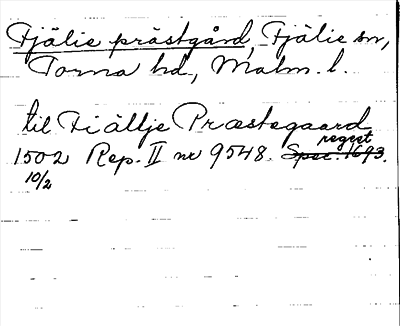 Fjälie prästgård, Fjälie sn,
Torna hd, Malm. l.
til Fiällje Præstegaard
1502 Rep. II nr 9548. Spec. 1693. regest
10/2